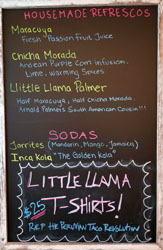 HOUSEMADE REFRESCOS
Maracuya
Fresh Passion Fruit Juice
Chicha Morada
Andean Purple Corn Infusion,
Lime, Warming Spices
Little Llama Palmer
Half Maracuya, Half Chicha Morada
Arnold Palmer's South American Cousin!!!
SODAS
Jarritos (Mandarin, Mango, Jamaica)
Inca Kola "The Golden Kola"
LITTLE LLAMA
$25 T-SHIRTS!
REP THE PERUVIAN TACO REVOLUTION